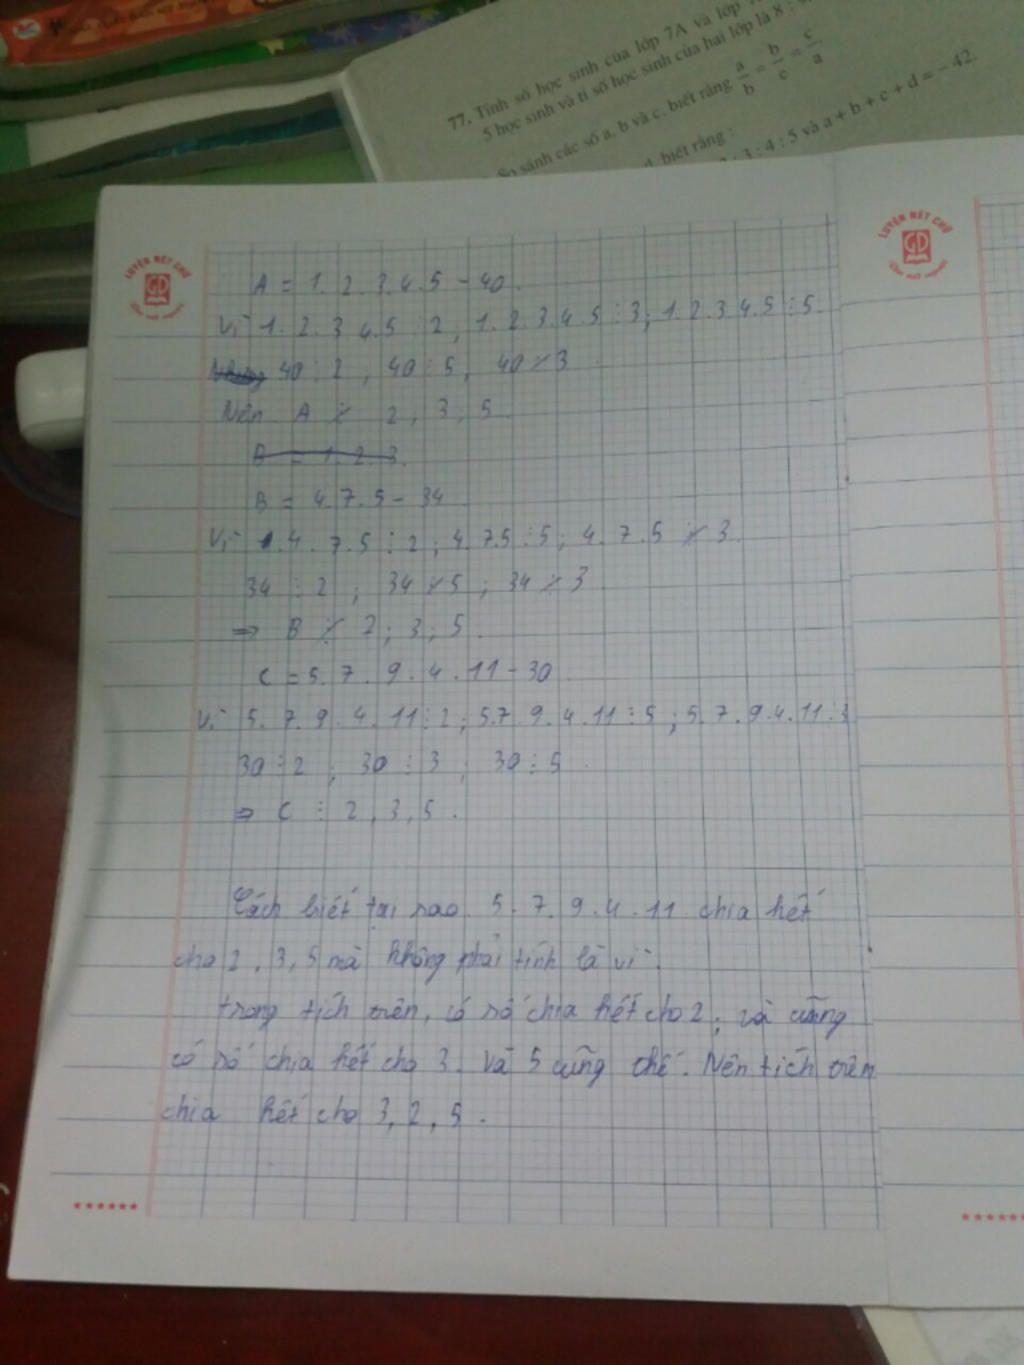 77. Tính số học sinh của lớp 7A và lớp
5 học sinh và tỉ số học sinh của hai lớp là 8 :
So sánh các số a, b và c, biết rằng a/b = b/c = c/a
d, biết rằng :
: 3 : 4 : 5 và a + b + c + d = – 42.
LUYỆN NÉT CHỮ
GD
LUYỆN NÉT CHỮ
GD
A = 1.2.3.4.5 - 40.
Vì 1.2.3 4.5 ⋮ 2, 1.2.3.4.5 ⋮ 3; 1.2.3.4.5 ⋮ 5.
40 ⋮ 2, 40 ⋮ 5, 40 ⋮̸ 3
Nên A ⋮̸ 2, 3, 5.
B = 1.2.3.
B = 4.7.5 - 34
Vì 4.7.5 ⋮ 2; 4.7.5 ⋮ 5; 4.7.5 ⋮̸ 3.
34 ⋮ 2; 34 ⋮̸ 5; 34 ⋮̸ 3
⇒ B ⋮̸ 2; 3; 5.
C = 5.7.9.4.11 - 30
Vì 5.7.9.4.11 ⋮ 2; 5.7.9.4.11 ⋮ 5; 5.7.9.4.11 ⋮ 3
30 ⋮ 2; 30 ⋮ 3; 30 ⋮ 5.
⇒ C ⋮ 2, 3, 5.
Cách biết tại sao 5.7.9.4.11 chia hết
cho 2, 3, 5 mà không phải tính là vì.
trong tích trên, có số chia hết cho 2; và cũng
có số chia hết cho 3. Và 5 cũng thế. Nên tích trên
chia hết cho 3, 2, 5.